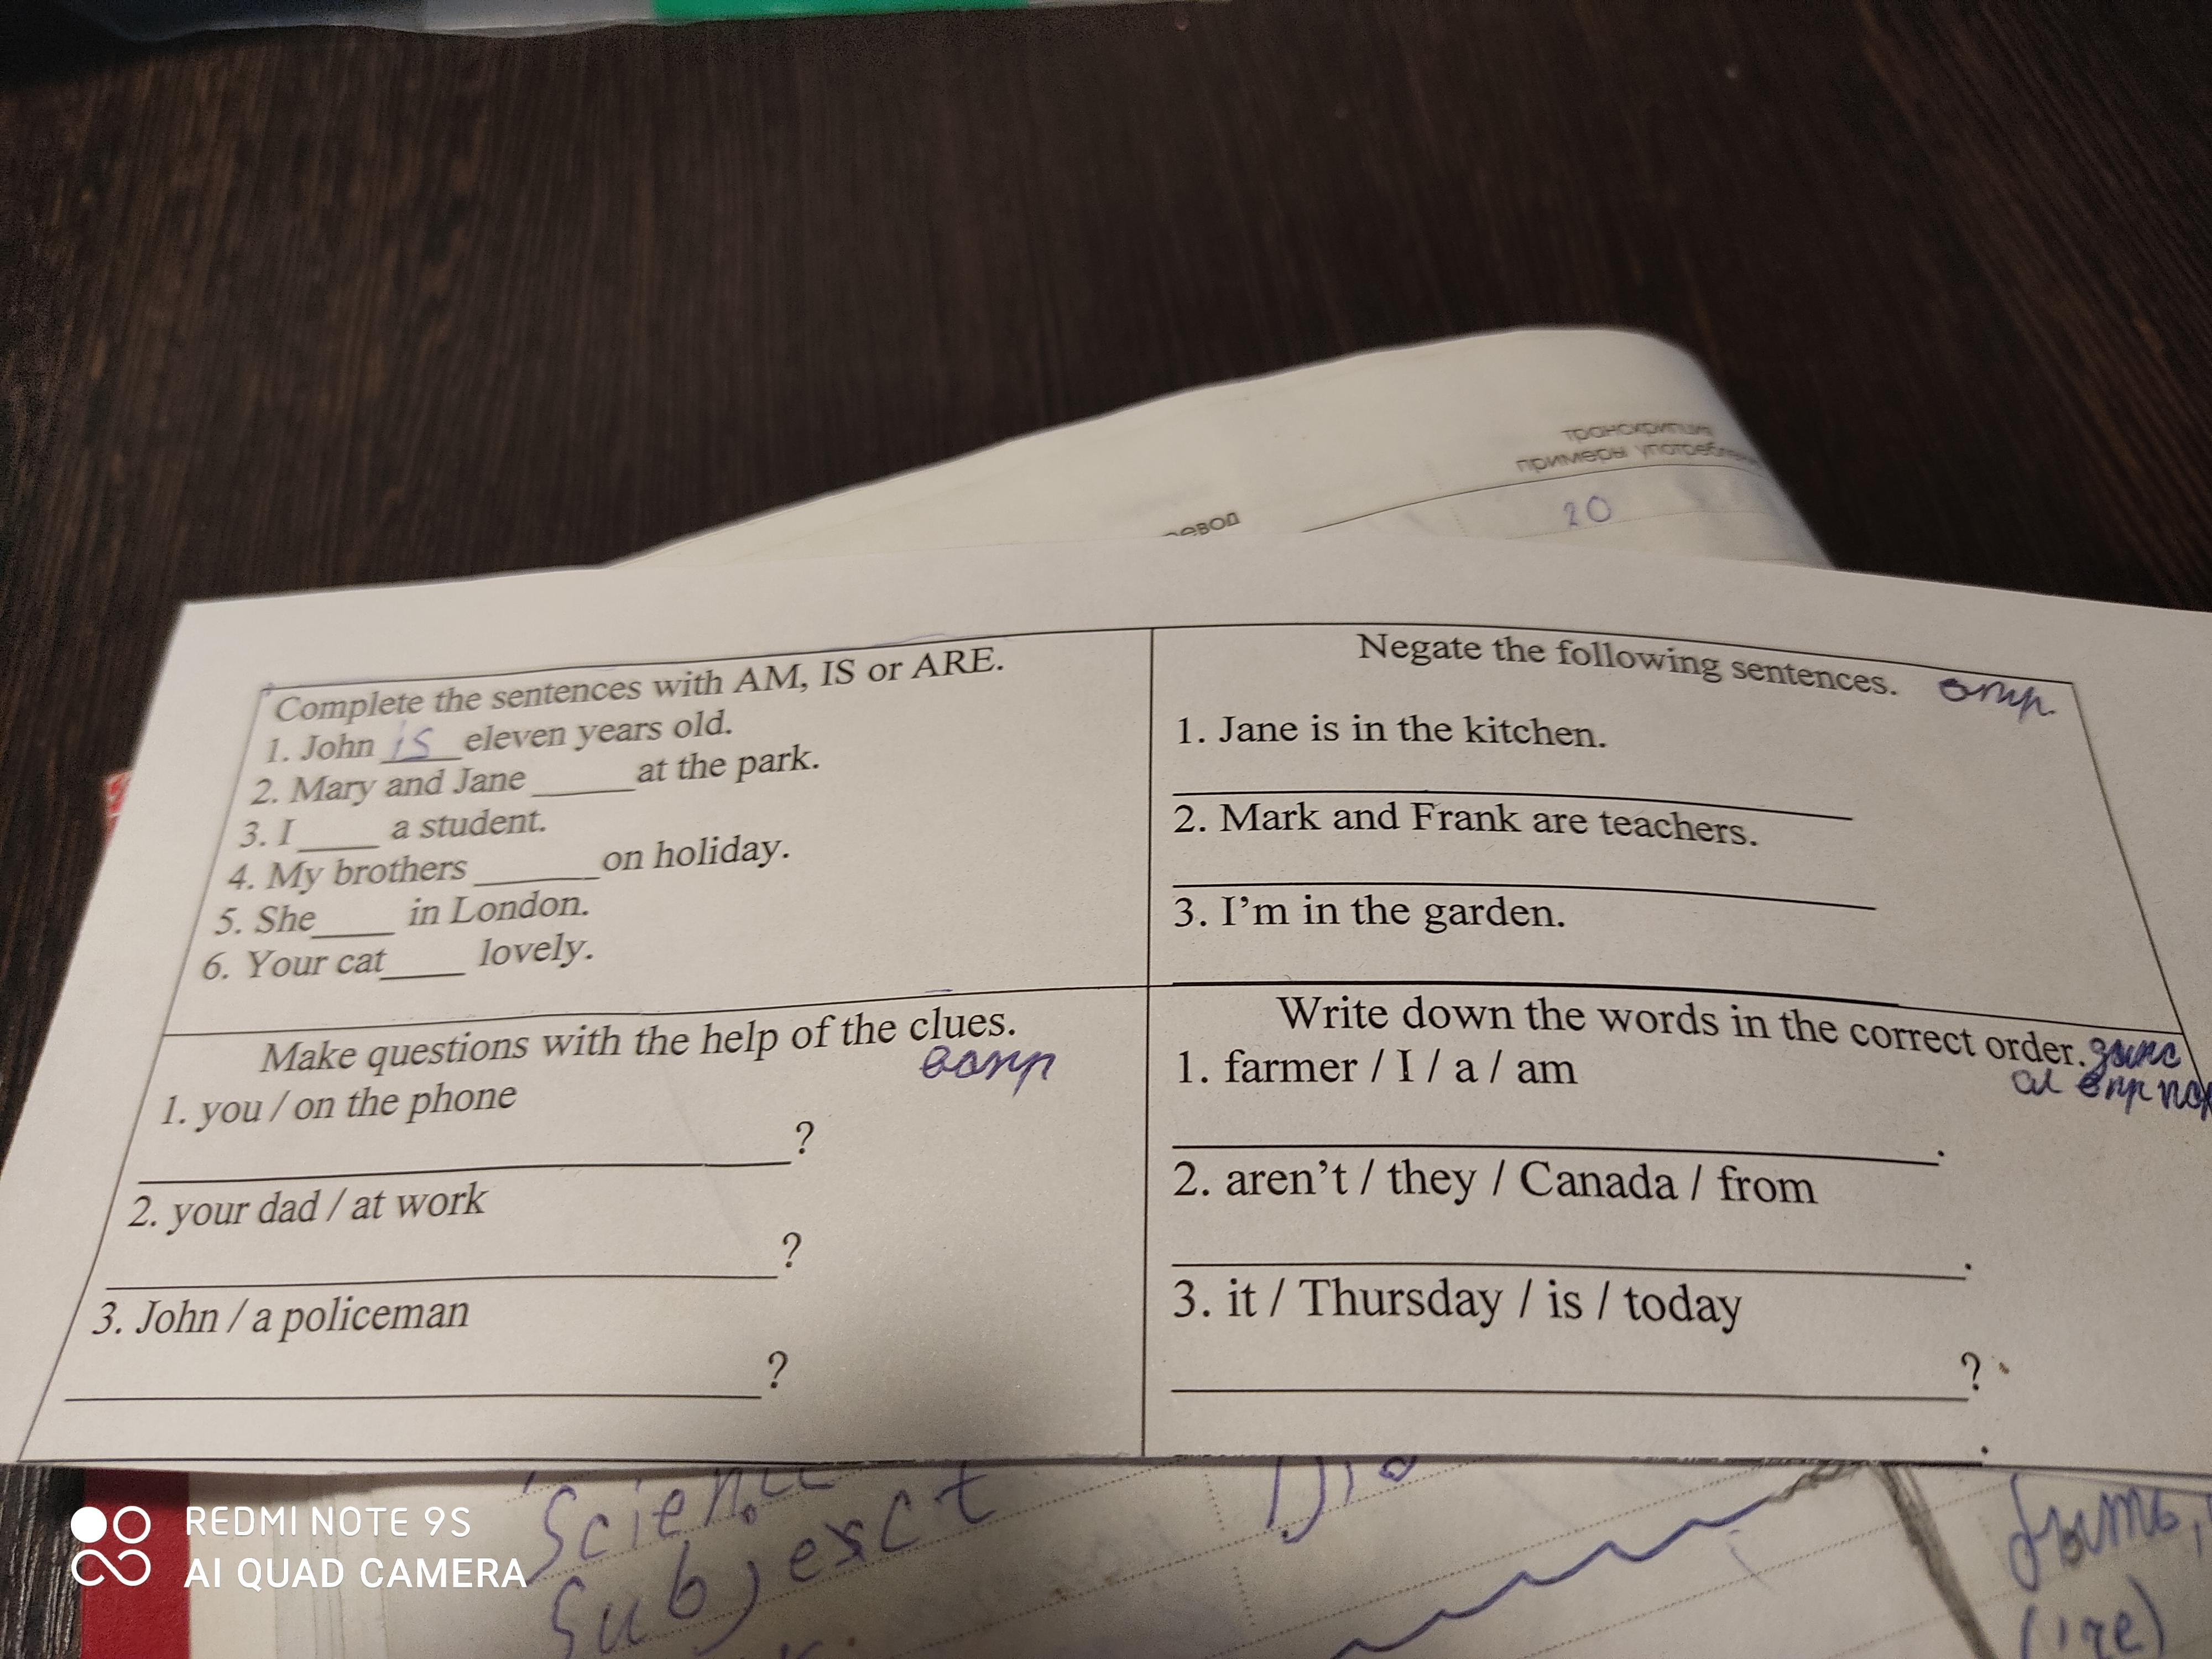 транскрипция
примеры употребле
ревод
20
Complete the sentences with AM, IS or ARE.
1. John is eleven years old.
2. Mary and Jane _____ at the park.
3. I ____ a student.
4. My brothers ______ on holiday.
5. She____ in London.
6. Your cat____ lovely.
Negate the following sentences. отр.
1. Jane is in the kitchen.
2. Mark and Frank are teachers.
3. I'm in the garden.
Make questions with the help of the clues.
вопр
1. you / on the phone
?
2. your dad / at work
?
3. John / a policeman
?
Write down the words in the correct order.
1. farmer / I / a / am
.
2. aren't / they / Canada / from
.
3. it / Thursday / is / today
?
.
Science
Subjesct
REDMI NOTE 9S
AI QUAD CAMERA